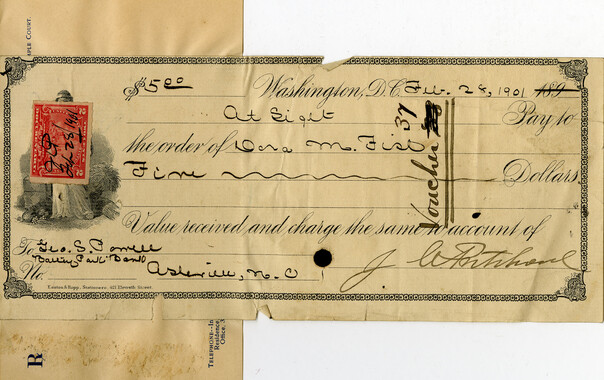 MPLE COURT.
$5.00 Washington, D.C. Feb. 28, 1901 189
At Sight Pay to
the order of Dora M. Fish
Five Dollars
Voucher 37
Value received and charge the same to account of
To Geo. S. Powell
Battery Park Bank
No. Asheville, N.C
J C Pritchard
Easton & Rupp, Stationers, 421 Eleventh Street.
Feb 28/1901
R
TELEPHONE—In
Residence,
Office, 3